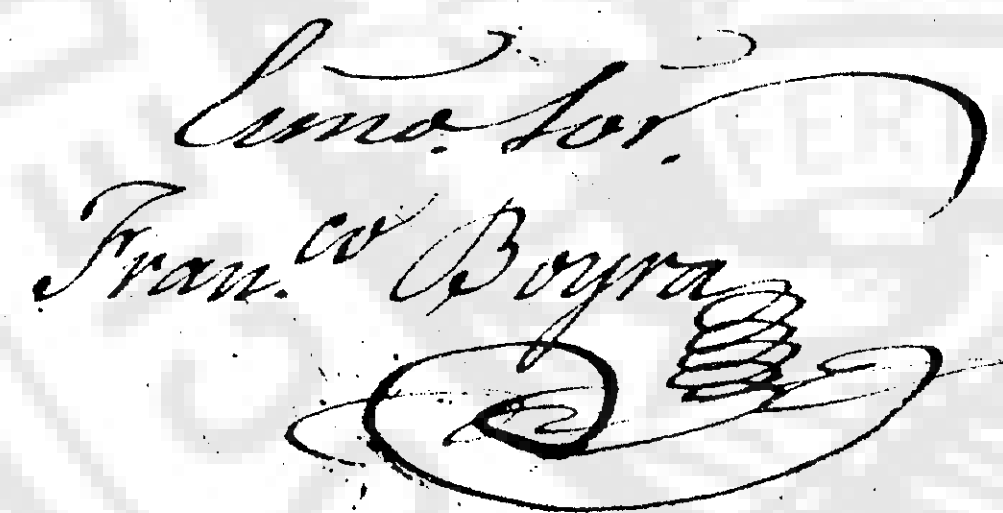 Exmo. Sor.
Fran.co Boyra